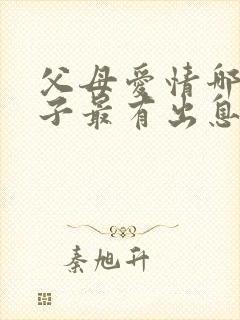 父母爱情哪
子最有出息
秦旭升